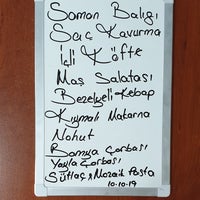 Somon Balığı
Saç Kavurma
İçli Köfte
Maş Salatası
Bezelyeli Kebap
Kıymalı Makarna
Nohut
Bamya Çorbası
Yayla Çorbası
Sütlaç x Mozaik Pasta
10.10.19